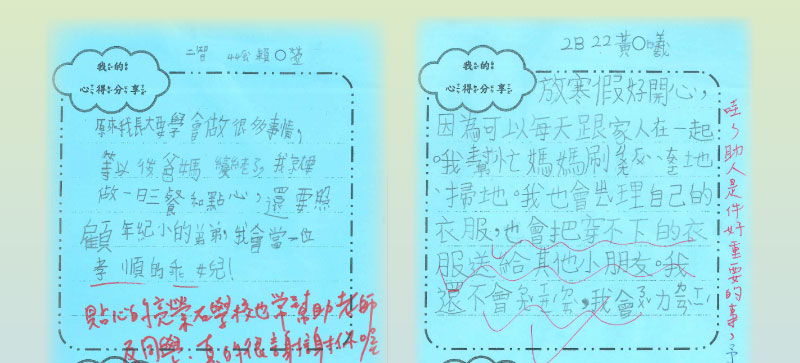 二智 44號 賴○瑩
我的
心得分享
原來我長大要學會做很多事情，
等以後爸媽變老了我就要
做一日三餐和點心，還要照
顧年紀小的弟弟，我會當一位
孝順的乖女兒！
貼心的 瑩在學校也常幫助老師
及同學，真的很謝謝你喔
2B 22 黃○曦
我的
心得分享
放寒假好開心，
因為可以每天跟家人在一起
。我幫忙媽媽刷 地
、掃地。我也會 理自己的
衣服，也會把穿不下的衣
服送給其他小朋友。我
還不會 ，我會
哇～助人是件好重要的事，予